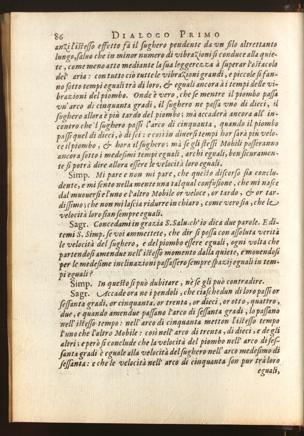 86 DIALOGO PRIMO
anzi l'istesso effetto fa il sughero pendente da vn filo altrettanto
lungo, saluo che in minor numero di vibrazioni si conduce alla quie-
te, come meno atto mediante la sua leggerezza à superar l'ostacolo
del' aria: con tutto ciò tutte le vibrazioni grandi, e piccole si fan-
no sotto tempi eguali trà di loro, & eguali ancora à i tempi delle vi-
brazioni del piombo. Onde è vero, che se mentre il piombo passa
vn'arco di cinquanta gradi, il sughero ne passa vno di dieci, il
sughero allora è più tardo del piombo: mà accaderà ancora all' in-
contro che 'l sughero passi l'arco di cinquanta, quando il piombo
passi quel di dieci, ò di sei: e così in diuersi tempi hor sarà più velo-
ce il piombo, & hora il sughero: mà se gli stessi Mobili passeranno
ancora sotto i medesimi tempi eguali, archi eguali, ben sicuramen-
te si potrà dire allora essere le velocità loro eguali.
Simp. Mi pare e non mi pare, che questo discorso sia conclu-
dente, e mi sento nella mente vna tal qual confusione, che mi nasce
dal muouersi e l'vno e l'altro Mobile or veloce, or tardo, & or tar-
dissimo; che non mi lascia ridurre in chiaro, come vero sia, che le
velocità loro sian sempre eguali.
Sagr. Concedami in grazia S. Salu. ch'io dica due parole. E di-
temi S. Simp. se voi ammettete, che dir si possa con assoluta verità
le velocità del sughero, e del piombo essere eguali, ogni volta che
partendosi amendue nell'istesso momento dalla quiete, e mouendosi
per le medesime inclinazioni passassero sempre spazij eguali in tem-
pi eguali?
Simp. In questo si può dubitare, nè se gli può contradire.
Sagr. Accade ora ne i pendoli, che ciaschedun di loro passi or
sessanta gradi, or cinquanta, or trenta, or dieci, or otto, quattro,
due, e quando amendue passano l'arco di sessanta gradi, lo passano
nell'istesso tempo: nell'arco di cinquanta metton l'istesso tempo
l'vno che l'altro Mobile: così nell'arco di trenta, di dieci, e de gli
altri: e però si conclude che la velocità del piombo nell'arco di ses-
santa gradi è eguale alla velocità del sughero nell'arco medesimo di
sessanta: e che le velocità nell'arco di cinquanta son pur trà loro
eguali,